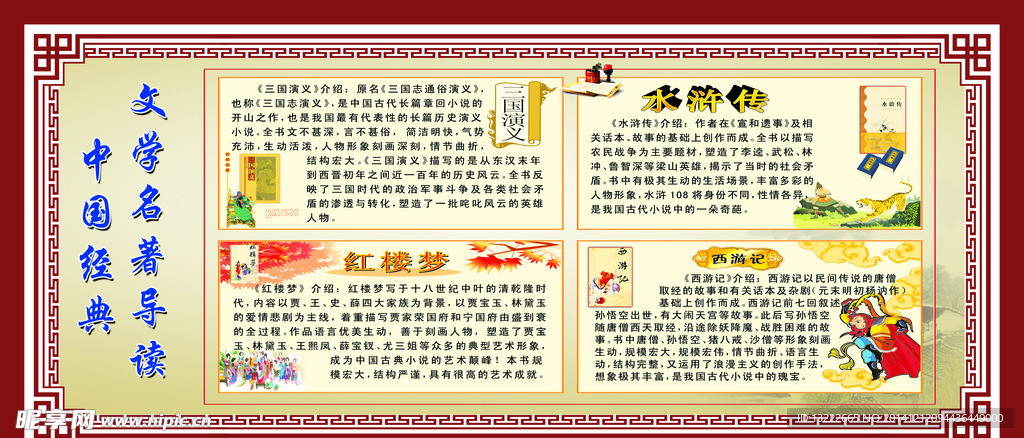 中国经典
文学名著导读
《三国演义》介绍：原名《三国志通俗演义》，
也称《三国志演义》，是中国古代长篇章回小说的
开山之作，也是我国最有代表性的长篇历史演义
小说。全书文不甚深，言不甚俗， 简洁明快，气势
充沛，生动活泼，人物形象刻画深刻，情节曲折，
结构宏大。《三国演义》描写的是从东汉末年
到西晋初年之间近一百年的历史风云。全书反
映了三国时代的政治军事斗争及各类社会矛
盾的渗透与转化，塑造了一批咤叱风云的英雄
人物。
三国演义
水浒传
《水浒传》介绍：作者在《宣和遗事》及相
关话本、故事的基础上创作而成。全书以描写
农民战争为主要题材，塑造了李逵、武松、林
冲、鲁智深等梁山英雄，揭示了当时的社会矛
盾。书中有极其生动的生活场景，丰富多彩的
人物形象，水浒 108 将身份不同，性情各异，
是我国古代小说中的一朵奇葩。
水浒传
红楼梦
红楼梦
《红楼梦》 介绍：红楼梦写于十八世纪中叶的清乾隆时
代，内容以贾、王、史、薛四大家族为背景，以贾宝玉、林黛玉
的爱情悲剧为主线，着重描写贾家荣国府和宁国府由盛到衰
的全过程。作品语言优美生动， 善于刻画人物， 塑造了贾宝
玉、林黛玉、王熙凤、薛宝钗、尤三姐等众多的典型艺术形象，
成为中国古典小说的艺术巅峰！本书规
模宏大，结构严谨，具有很高的艺术成就。
西游记
西游记
《西游记》介绍：西游记以民间传说的唐僧
取经的故事和有关话本及杂剧（元末明初杨讷作）
基础上创作而成。西游记前七回叙述
孙悟空出世，有大闹天宫等故事。此后写孙悟空
随唐僧西天取经，沿途除妖降魔、战胜困难的故
事。书中唐僧、孙悟空、猪八戒、沙僧等形象刻画
生动，规模宏大，规模宏伟，情节曲折、语言生
动，结构完整，又运用了浪漫主义的创作手法，
想象极其丰富，是我国古代小说中的瑰宝。
昵享网 www.nipic.cn